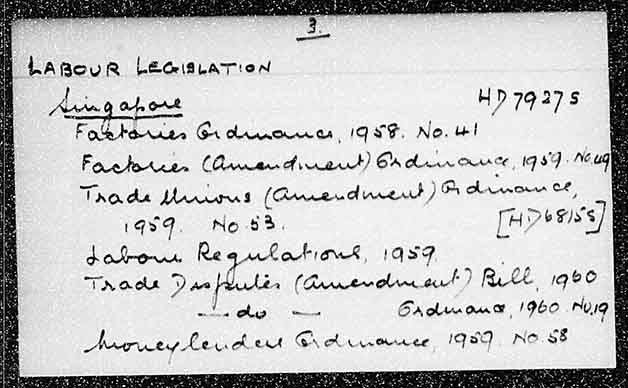 3.
LABOUR LEGISLATION
Singapore HD7937S
Factories Ordinance, 1958. No. 41
Factories (Amendment) Ordinance, 1959. No. 49
Trade Unions (Amendment) Ordinance,
1959. No. 53. [HD6815S]
Labour Regulations, 1959.
Trade Disputes (Amendment) Bill, 1960
— do — Ordinance, 1960 No. 19
Moneylenders Ordinance, 1959. No. 58